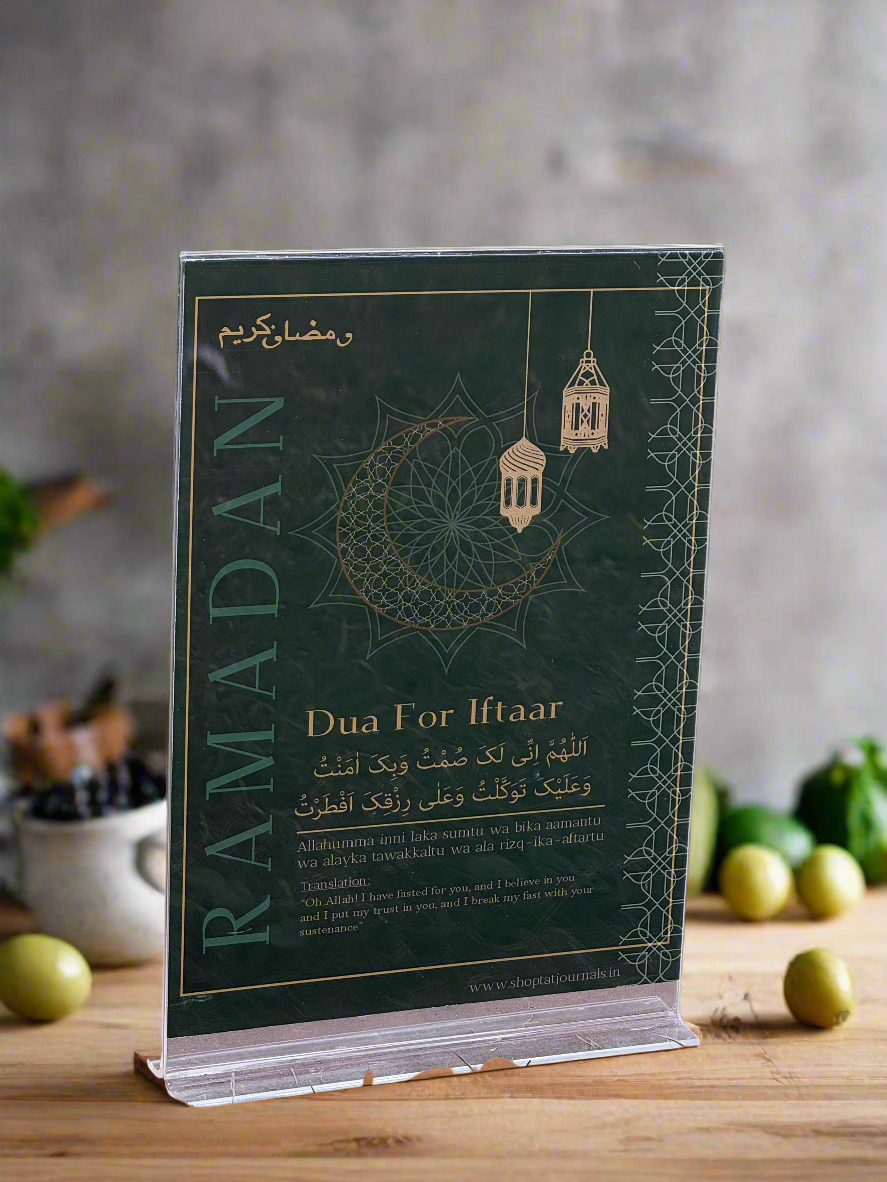 رمضان كريم
RAMADAN
Dua For Iftaar
اَللّٰهُمَّ اِنِّی لَکَ صُمْتُ وَبِکَ اٰمَنْتُ
وَعَلَيْکَ تَوَکَّلْتُ وَعَلٰی رِزْقِکَ اَفْطَرْتُ
Allahumma inni laka sumtu wa bika aamantu
wa alayka tawakkaltu wa ala rizq-ika-aftartu
Translation:
"Oh Allah! I have fasted for you, and I believe in you
and I put my trust in you, and I break my fast with your
sustenance"
www.shoptatjournals.in